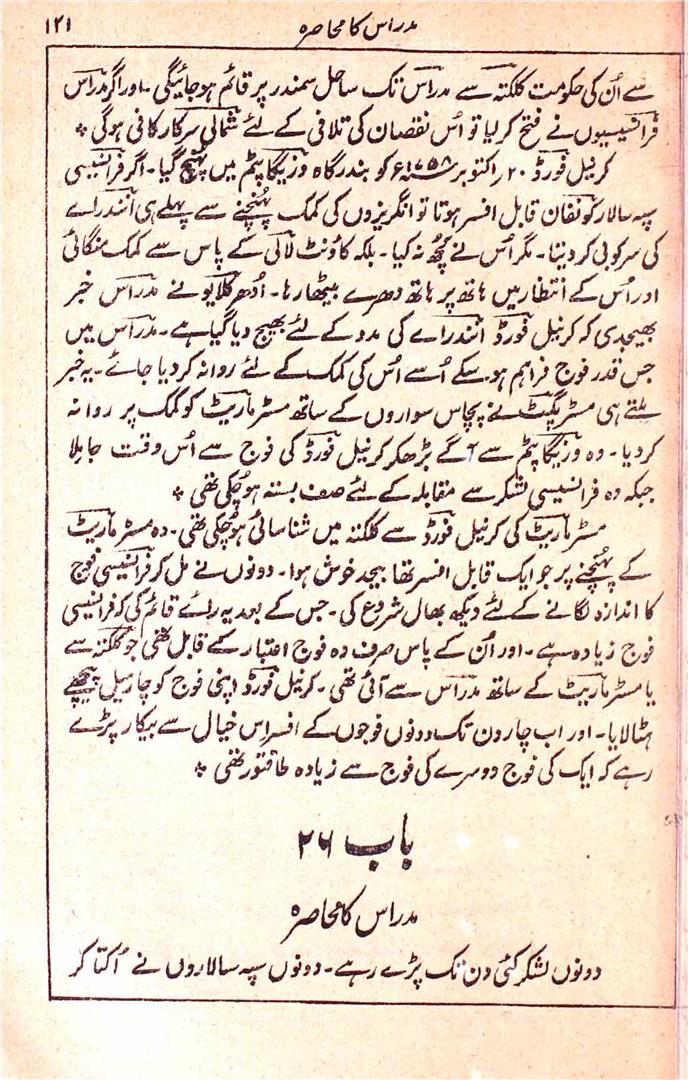 مدراس کا محاصرہ ۱۲۱
سے اُن کی حکومت کلکتہ سے مدراس تک ساحل سمندر پر قائم ہو جائیگی۔ اور اگر مدراس
فرانسیسیوں نے فتح کر لیا تو اُس نقصان کی تلافی کے لئے شمالی سرکار کافی ہوگی ٭
کرنیل فورڈ ۲۰ راکتوبر ۱۷۵۸ء کو بندرگاہ وزیگاپٹم میں پہنچ گیا۔ اگر فرانسیسی
سپہ سالار کونفان قابل افسر ہوتا تو انگریزوں کی کمک پہنچنے سے پہلے ہی آنند راے
کی سرکوبی کر دیتا۔ مگر اُس نے کچھ نہ کیا۔ بلکہ کاونٹ لالی کے پاس سے کمک منگائی
اور اُس کے انتظار میں ہاتھ پر ہاتھ دھرے بیٹھا رہا۔ اُدھر کلایو نے مدراس خبر
بھیجدی کہ کرنیل فورڈ آنند راے کی مدد کے لئے بھیج دیا گیا ہے۔ مدراس میں
جس قدر فوج فراہم ہو سکے اُسے اُس کی کمک کے لئے روانہ کر دیا جائے۔ یہ خبر
ملتے ہی مسٹر پگٹ نے پچاس سواروں کے ساتھ مسٹر ماریٹ کو کمک پر روانہ
کر دیا۔ وہ وزیگاپٹم سے آگے بڑھکر کرنیل فورڈ کی فوج سے اُس وقت جا ملا
جبکہ وہ فرانسیسی لشکر سے مقابلہ کے لئے صف بستہ ہو چکی تھی ٭
مسٹر ماریٹ کی کرنیل فورڈ سے کلکتہ میں شناسائی ہو چکی تھی۔ وہ مسٹر ماریٹ
کے پہنچنے پر جو ایک قابل افسر تھا بیحد خوش ہوا۔ دونوں نے مل کر فرانسیسی فوج
کا اندازہ لگانے کے لئے دیکھ بھال شروع کی۔ جس کے بعد یہ رائے قائم کی کہ فرانسیسی
فوج زیادہ ہے۔ اور اُن کے پاس صرف وہ فوج اعتبار کے قابل تھی جو کلکتہ سے
یا مسٹر ماریٹ کے ساتھ مدراس سے آئی تھی۔ کرنیل فورڈ اپنی فوج کو چار میل پیچھے
ہٹا لایا۔ اور اب چار دن تک دونوں فوجوں کے افسر اس خیال سے بیکار پڑے
رہے کہ ایک کی فوج دوسرے کی فوج سے زیادہ طاقتور تھی ٭
باب ۲۶
مدراس کا محاصرہ
دونوں لشکر کئی دن تک پڑے رہے۔ دونوں سپہ سالاروں نے اُکتا کر